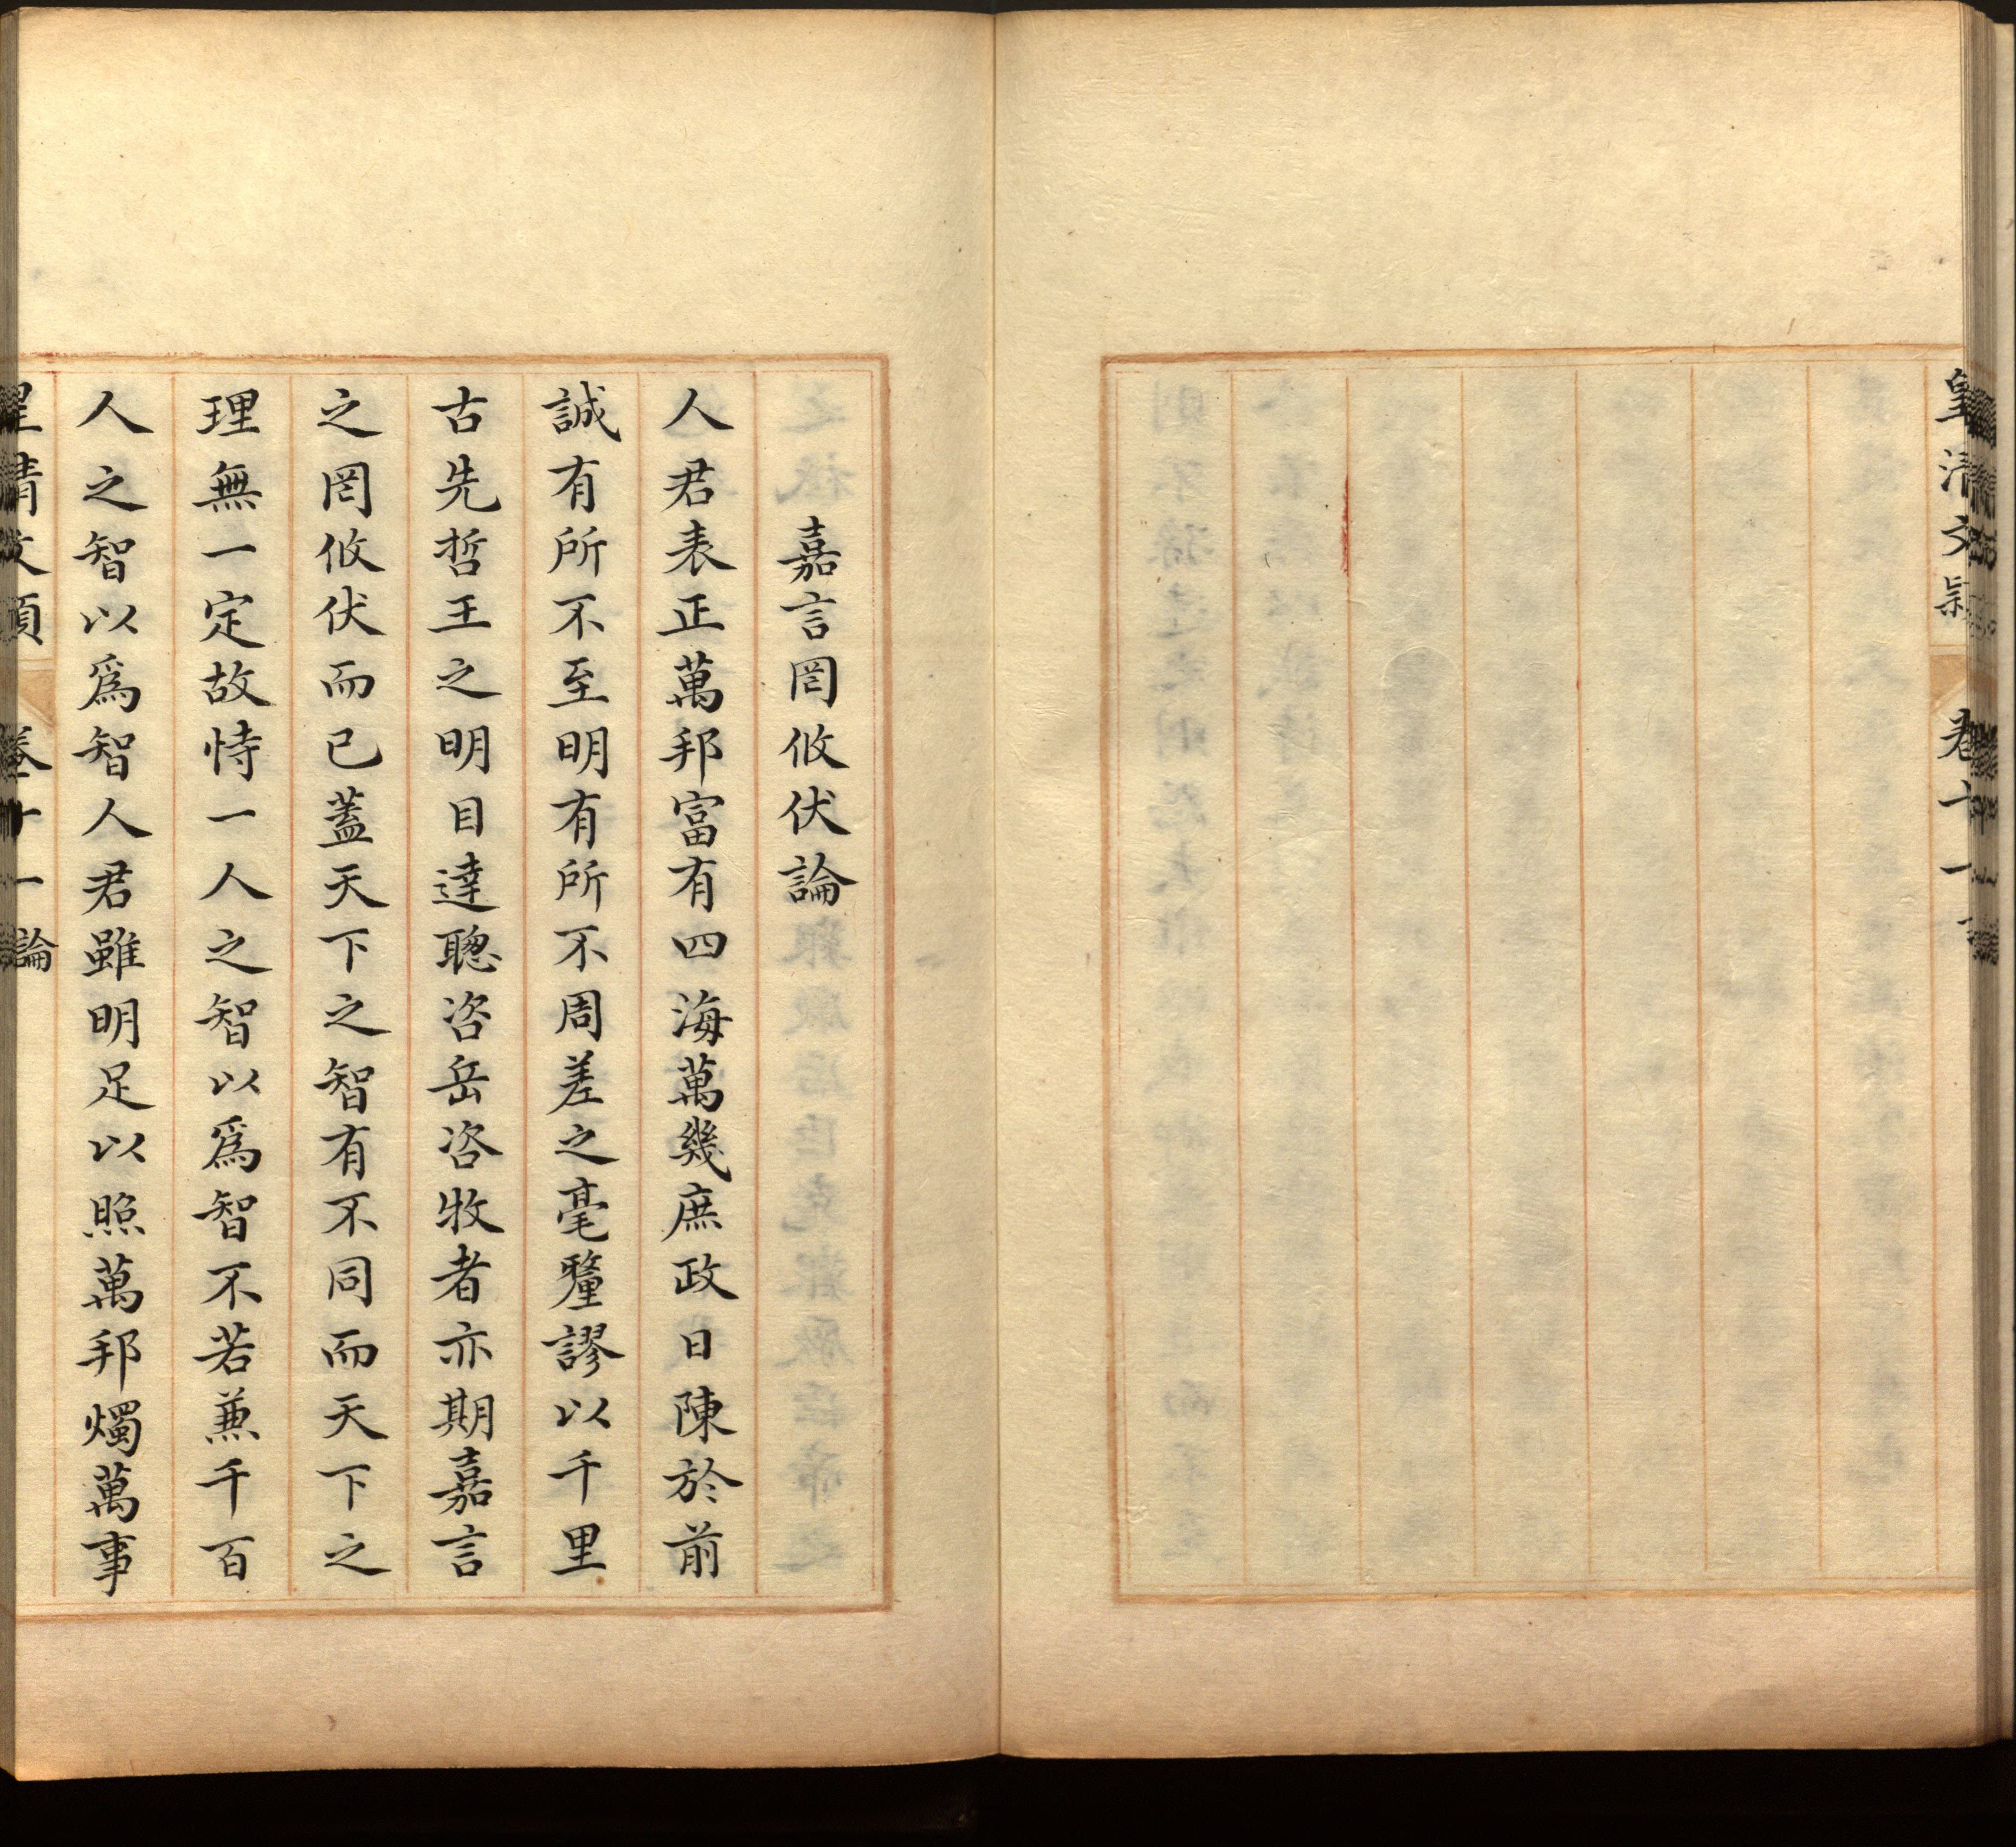 皇清文穎 卷十一
嘉言罔攸伏論
人君表正萬邦富有四海萬幾庶政日陳於前
誠有所不至明有所不周差之毫釐謬以千里
古先哲王之明目達聰咨岳咨牧者亦期嘉言
之罔攸伏而已蓋天下之智有不同而天下之
理無一定故恃一人之智以爲智不若兼千百
人之智以爲智人君雖明足以照萬邦燭萬事
皇清文穎 卷十一 論